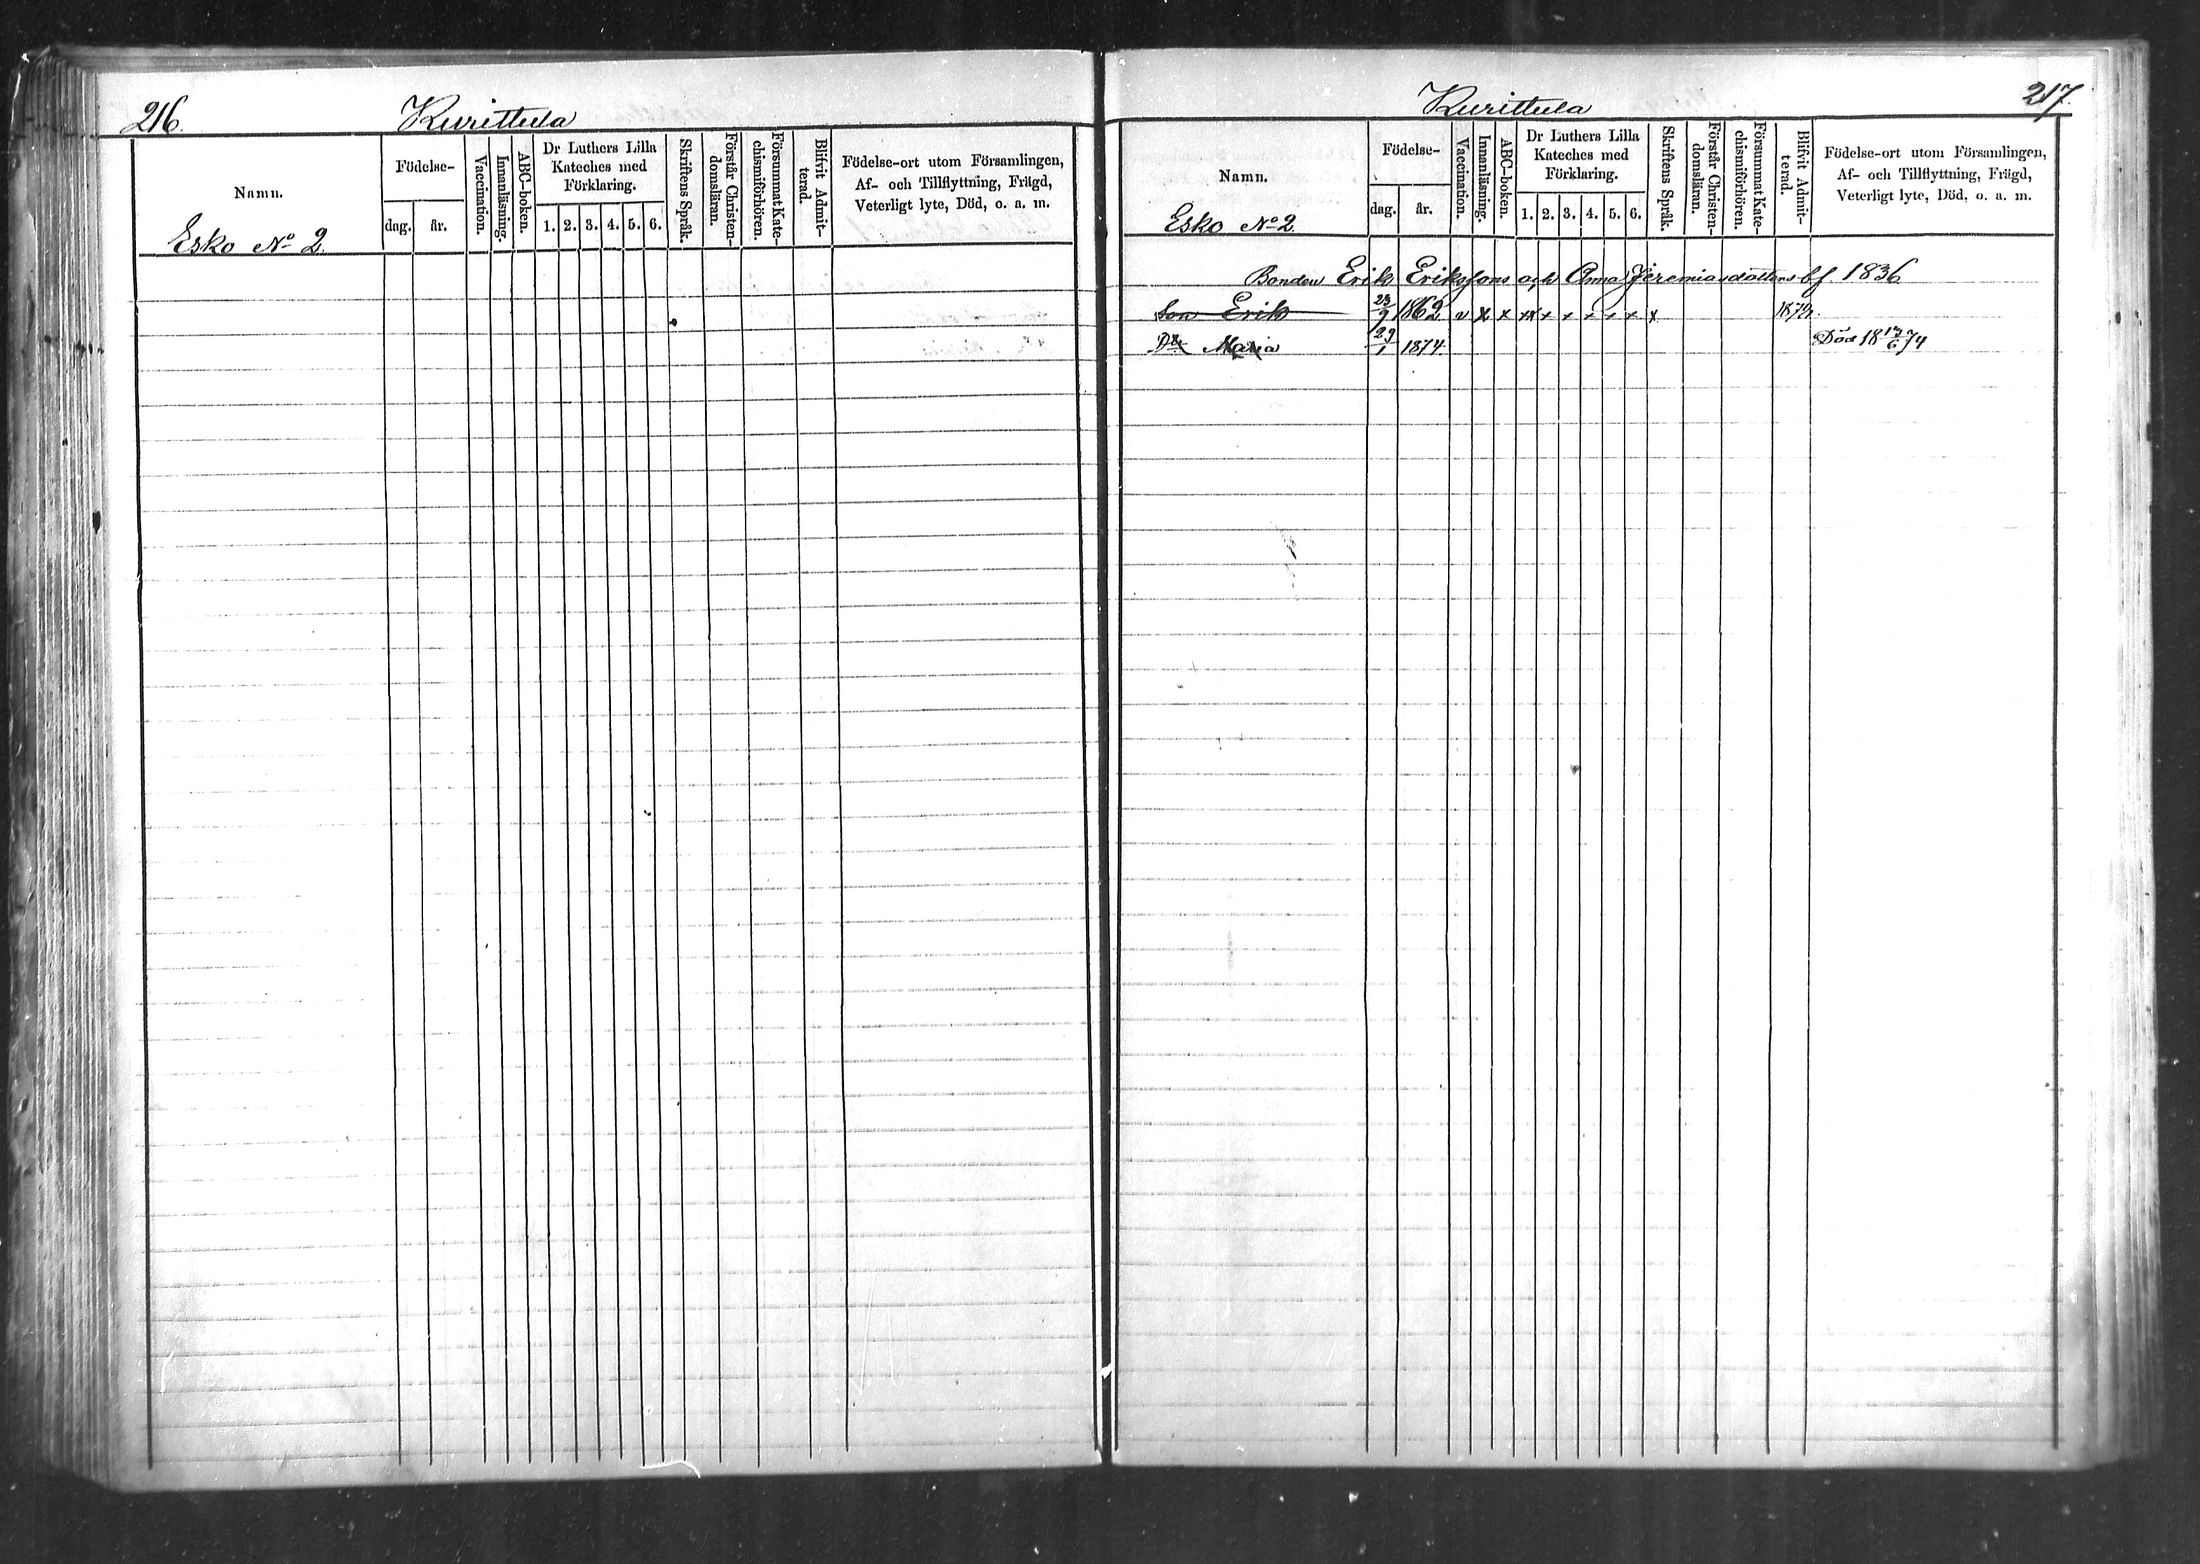 216.
Kurittula
Namn.
Födelse-
dag.
år.
Vaccination.
Innanläsning.
ABC-boken.
Dr Luthers Lilla
Kateches med
Förklaring.
1. 2. 3. 4. 5. 6.
Skriftens Språk.
Förstår Christen-
domsläran.
Försummat Kate-
chismiförhören.
Blifvit Admit-
terad.
Födelse-ort utom Församlingen,
Af- och Tillflyttning, Frägd,
Veterligt lyte, Död, o. a. m.
Esko No 2.
217.
Kurittula
Namn.
Födelse-
dag.
år.
Vaccination.
Innanläsning.
ABC-boken.
Dr Luthers Lilla
Kateches med
Förklaring.
1. 2. 3. 4. 5. 6.
Skriftens Språk.
Förstår Christen-
domsläran.
Försummat Kate-
chismiförhören.
Blifvit Admit-
terad.
Födelse-ort utom Församlingen,
Af- och Tillflyttning, Frägd,
Veterligt lyte, Död, o. a. m.
Esko No 2.
Bonden Erik Erikssons och Anna Jeremiasdotters bf 1836
Son Erik 23/9 1862 v x x xx x x x x x x
Dr Maria 29/1 1874 Död 18 13/6 74